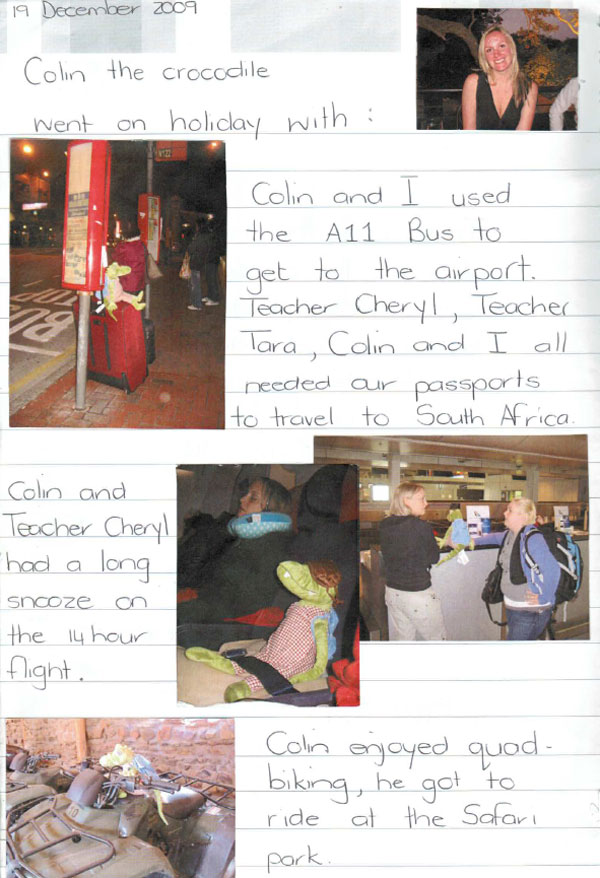 19 December 2009
Colin the crocodile
went on holiday with :
Colin and I used
the A11 Bus to
get to the airport.
Teacher Cheryl, Teacher
Tara, Colin and I all
needed our passports
to travel to South Africa.
BUS
Colin and
Teacher Cheryl
had a long
snooze on
the 14 hour
flight.
Colin enjoyed quad-
biking, he got to
ride at the Safari
park.